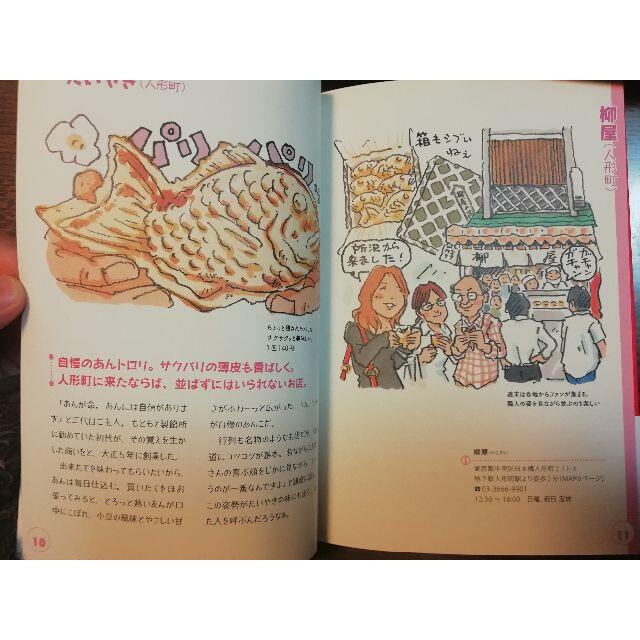 たいやき(人形町)
パリ
パリ
1匹140円
自慢のあんトロリ。サクパリの薄皮も香ばしく。
人形町に来たならば、並ばずにはいられないお店。
「あんが命。あんには自信があります」と二代目ご主人。もともと製餡所に勤めていた初代が、その覚えを生かした商いをと、大正5年に創業した。
出来たてを味わってもらいたいから、あんは毎日仕込む。買いたてをほお張ってみると、とろっと熱いあんが口中にこぼれ、小豆の風味とやさしい甘
さがふわーっと広がった。
が自慢のあんこだ。
行列も名物のようなお店だが、
道にコツコツが基本。
さんの喜ぶ顔をじかに見ながら、
うのが一番なんですよ」と謙虚に
この姿勢がたいやきの味にも出て
た人を呼ぶんだろうなぁ。
10
柳屋(人形町)
箱もシブい
ねぇ
所沢から
来ました!
柳屋
ガキャン
ガキャン
週末は各地からファンが集まる。
職人の姿を見ながら並ぶのも楽しい
① 柳屋
東京都中央区日本橋人形町2-11-3
地下鉄人形町駅より徒歩2分(MAP9ページ)
☎03-3666-9901
12:30~18:00 日曜、祝日定休
11